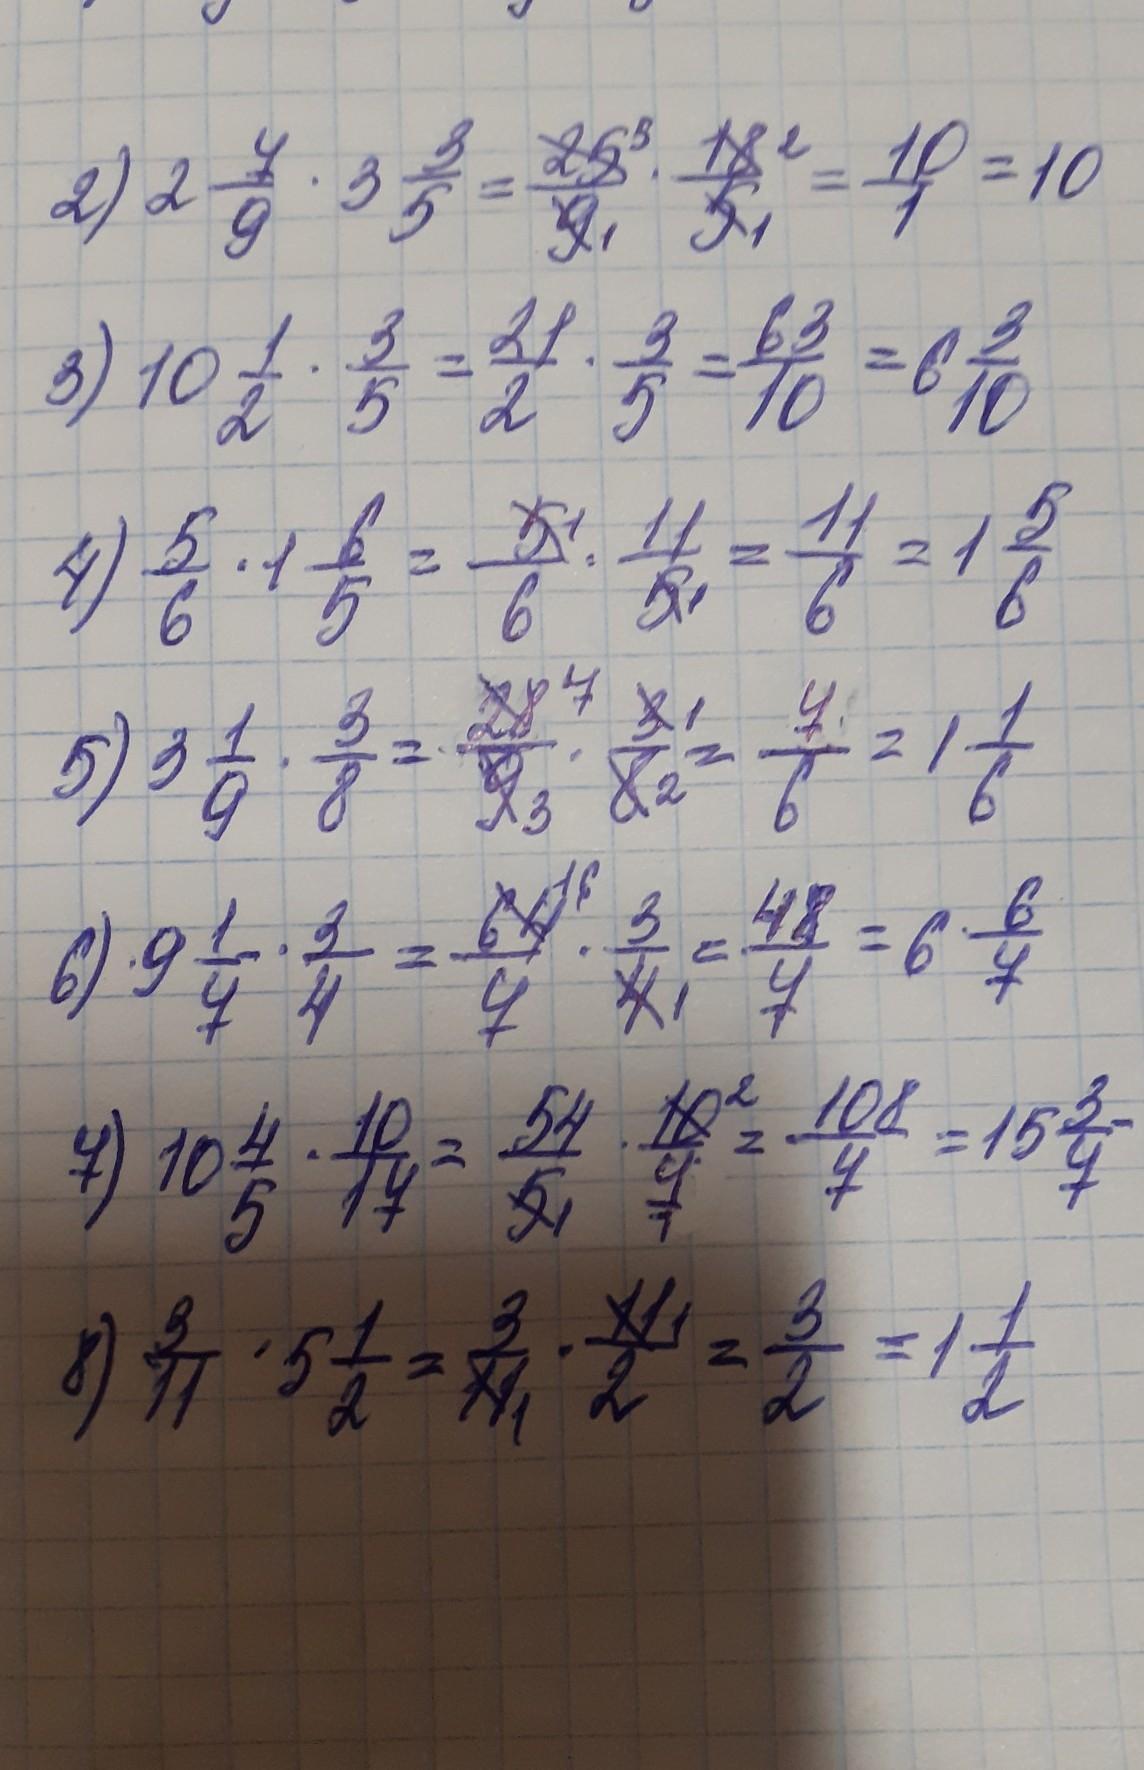 2) 2 7/9 · 3 3/5 = 25 5/9 1 · 18 2/5 1 = 10/1 = 10
3) 10 1/2 · 3/5 = 21/2 · 3/5 = 63/10 = 6 3/10
4) 5/6 · 1 6/5 = 5 1/6 · 11/5 1 = 11/6 = 1 5/6
5) 3 1/9 · 3/8 = 28 7/9 3 · 3 1/8 2 = 7/6 = 1 1/6
6) 9 1/7 · 3/4 = 64 16/7 · 3/4 1 = 48/7 = 6 6/7
7) 10 4/5 · 10/17 = 54/5 1 · 10 2/7 = 108/7 = 15 3/7
8) 3/11 · 5 1/2 = 3/11 1 · 11 1/2 = 3/2 = 1 1/2